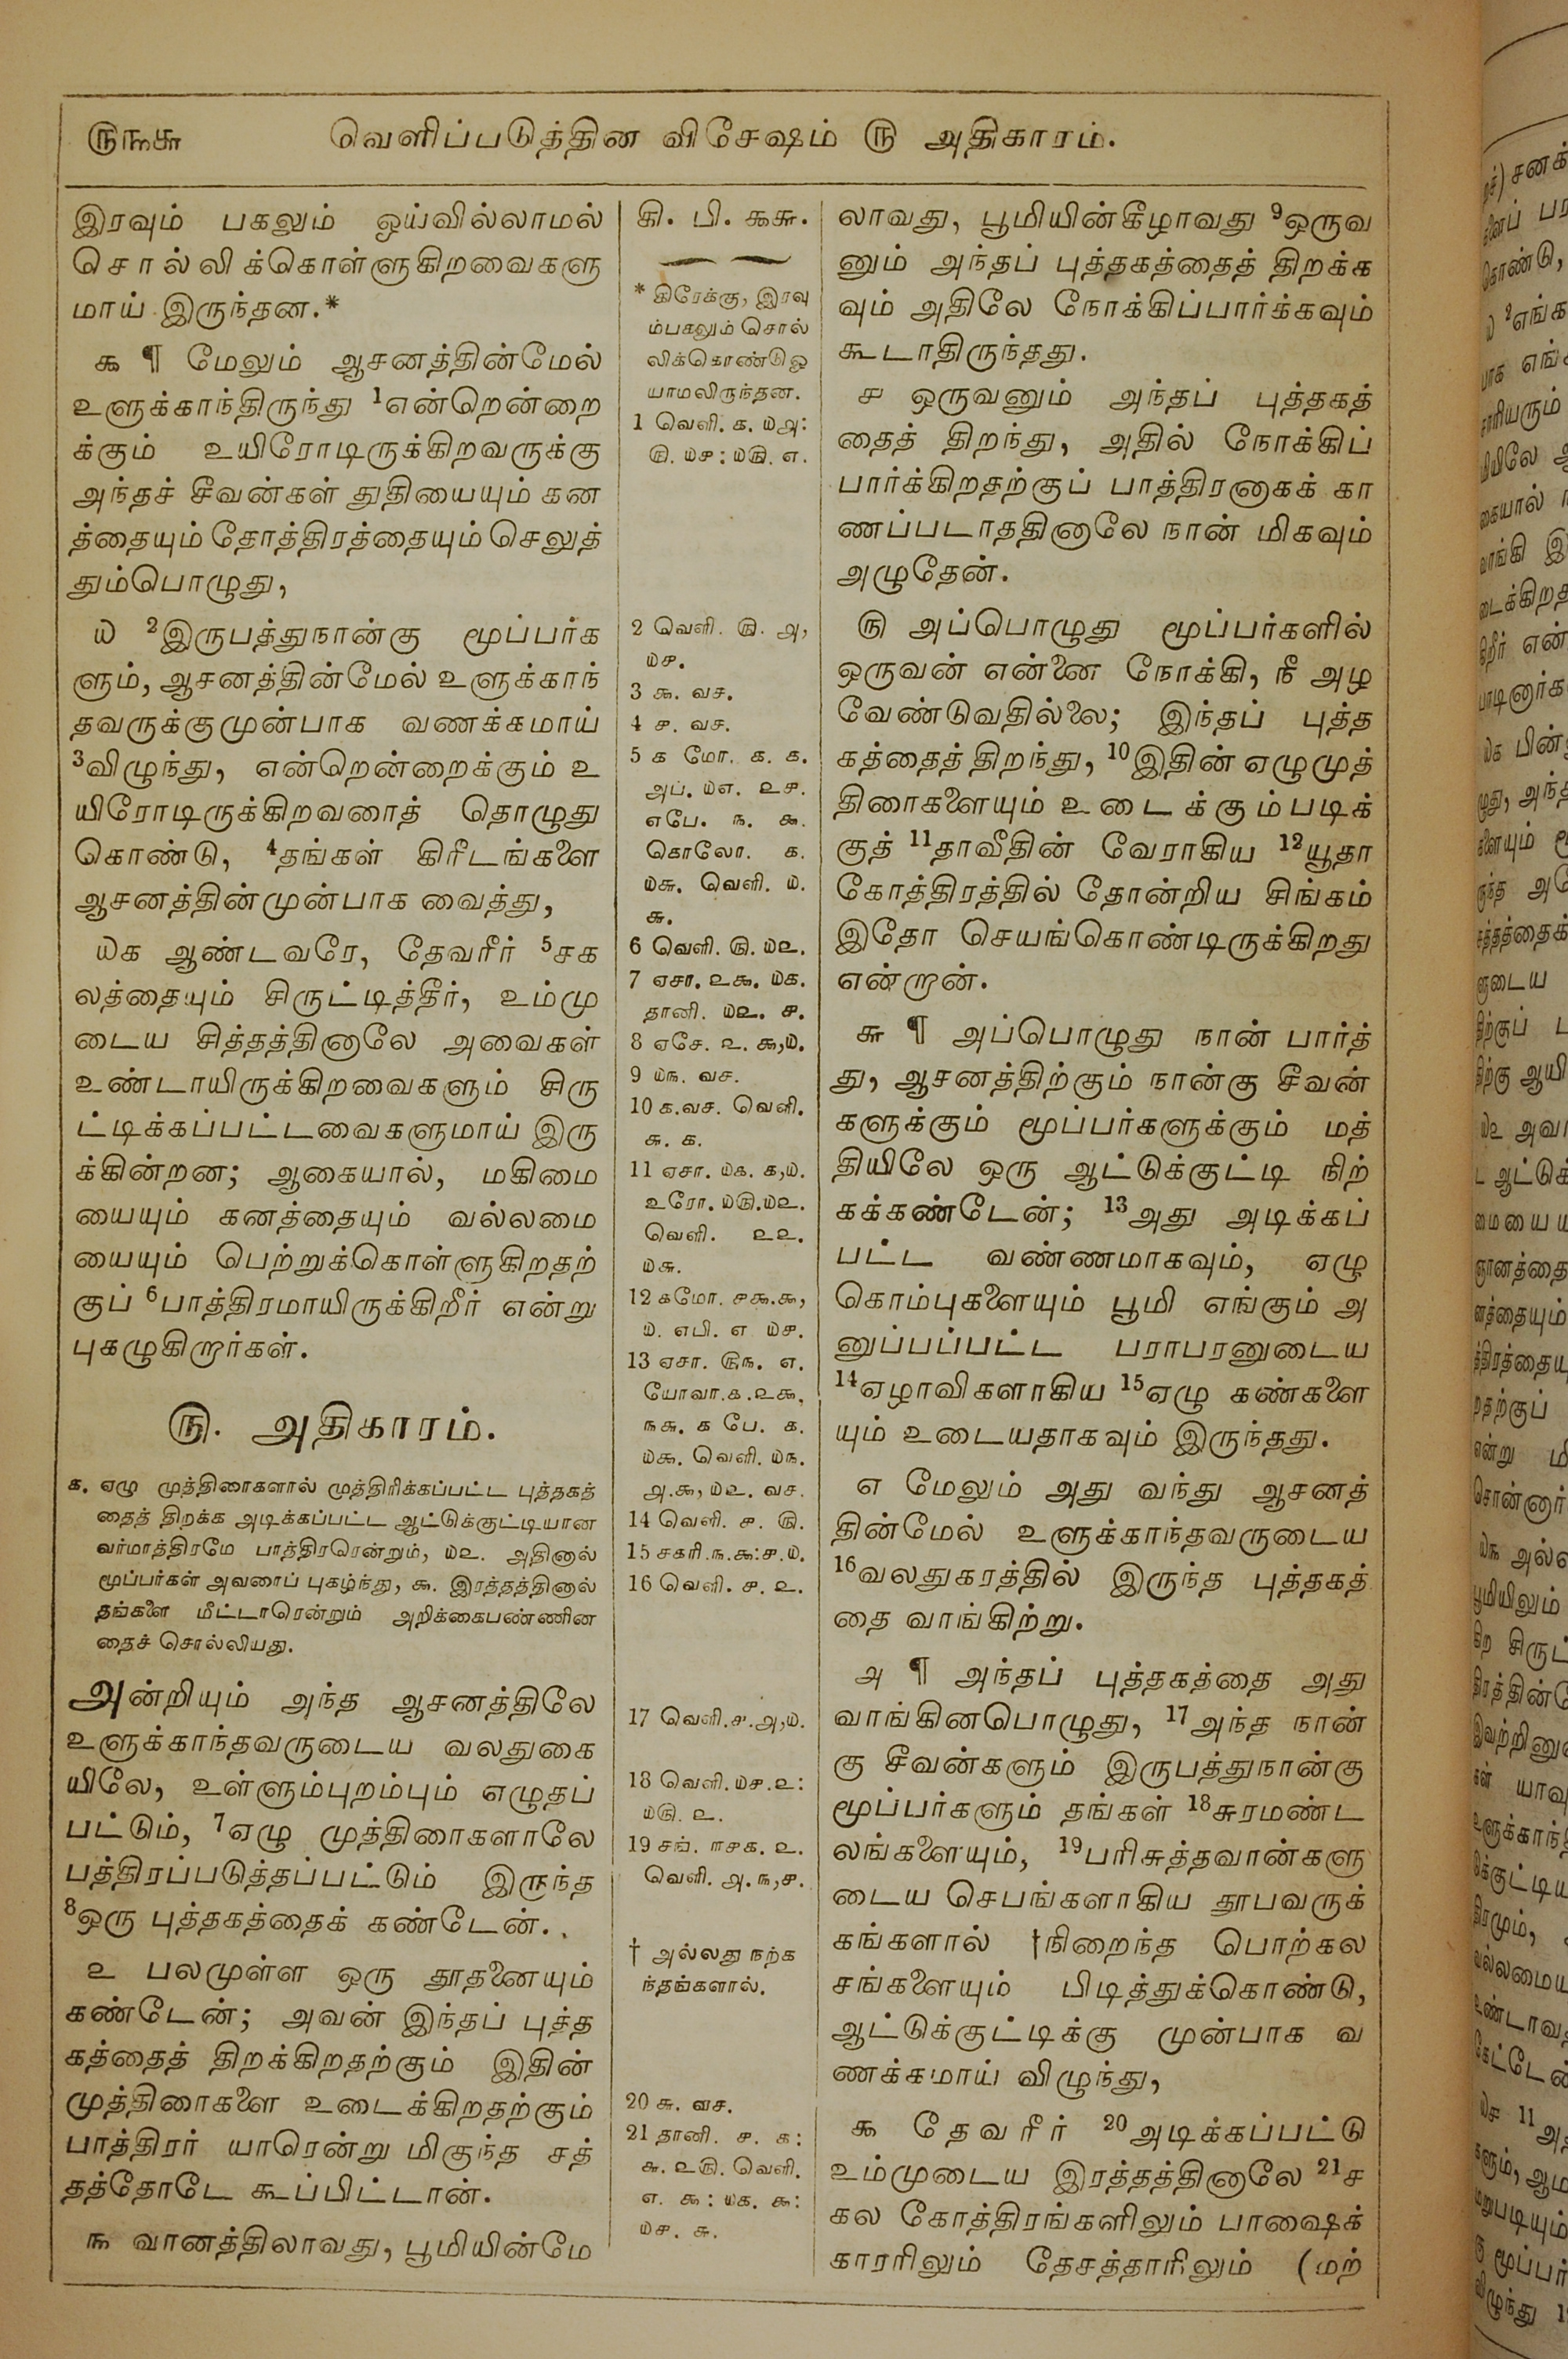 ௫௩௬ வெளிப்படுத்தின விசேஷம் ௫ அதிகாரம்.
இரவும் பகலும் ஓய்வில்லாமல்
சொல்லிக்கொள்ளுகிறவைகளு
மாய் இருந்தன.*
௯ ¶ மேலும் ஆசனத்தின்மேல்
உளுக்காந்திருந்து 1என்றென்றை
க்கும் உயிரோடிருக்கிறவருக்கு
அந்தச் சீவன்கள் துதியையும் கன
த்தையும் தோத்திரத்தையும் செலுத்
தும்பொழுது,
௰ 2இருபத்துநான்கு மூப்பர்க
ளும், ஆசனத்தின்மேல் உளுக்காந்
தவருக்குமுன்பாக வணக்கமாய்
3விழுந்து, என்றென்றைக்கும் உ
யிரோடிருக்கிறவரைத் தொழுது
கொண்டு, 4தங்கள் கிரீடங்களை
ஆசனத்தின்முன்பாக வைத்து,
௰௧ ஆண்டவரே, தேவரீர் 5சக
லத்தையும் சிருட்டித்தீர், உம்மு
டைய சித்தத்தினாலே அவைகள்
உண்டாயிருக்கிறவைகளும் சிரு
ட்டிக்கப்பட்டவைகளுமாய் இரு
க்கின்றன; ஆகையால், மகிமை
யையும் கனத்தையும் வல்லமை
யையும் பெற்றுக்கொள்ளுகிறதற்
குப் 6பாத்திரமாயிருக்கிறீர் என்று
புகழுகிறார்கள்.
௫. அதிகாரம்.
௧. ஏழு முத்திரைகளால் முத்திரிக்கப்பட்ட புத்தகத்
தைத் திறக்க அடிக்கப்பட்ட ஆட்டுக்குட்டியான
வர்மாத்திரமே பாத்திரரென்றும், ௰௨. அதினால்
மூப்பர்கள் அவரைப் புகழ்ந்து, ௯. இரத்தத்தினால்
தங்களை மீட்டாரென்றும் அறிக்கைபண்ணின
தைச் சொல்லியது.
அன்றியும் அந்த ஆசனத்திலே
உளுக்காந்தவருடைய வலதுகை
யிலே, உள்ளும்புறம்பும் எழுதப்
பட்டும், 7ஏழு முத்திரைகளாலே
பத்திரப்படுத்தப்பட்டும் இருந்த
8ஒரு புத்தகத்தைக் கண்டேன்.
௨ பலமுள்ள ஒரு தூதனையும்
கண்டேன்; அவன் இந்தப் புத்த
கத்தைத் திறக்கிறதற்கும் இதின்
முத்திரைகளை உடைக்கிறதற்கும்
பாத்திரர் யாரென்று மிகுந்த சத்
தத்தோடே கூப்பிட்டான்.
௩ வானத்திலாவது, பூமியின்மே
கி. பி. ௯௬.
* கிரேக்கு, இரவு
ம்பகலும் சொல்
லிக்கொண்டுஓ
யாமலிருந்தன.
1 வெளி. ௧. ௰அ:
௫. ௰௪: ௰௫. ௭.
2 வெளி. ௫. அ,
௰௪.
3 ௯. வச.
4 ௪. வச.
5 ௧ மோ. ௧. ௧.
அப். ௰௭. ௨௪.
எபே. ௩. ௯.
கொலோ. ௧.
௰௬. வெளி. ௰.
௬.
6 வெளி. ௫. ௰௨.
7 ஏசா. ௨௯. ௰௧.
தானி. ௰௨. ௪.
8 ஏசே. ௨. ௯,௰.
9 ௰௩. வச.
10 ௧.வச. வெளி.
௬. ௧.
11 ஏசா. ௰௧. ௧,௰.
உரோ. ௰௫.௰௨.
வெளி. ௨௨.
௰௬.
12 ௧மோ. ௪௯.௯,
௰. எபி. ௭ ௰௪.
13 ஏசா. ௫௩. ௭.
யோவா.௧.௨௯,
௩௬. ௧ பே. ௧.
௰௯. வெளி. ௰௩.
அ.௯, ௰௨. வச.
14 வெளி. ௪. ௫.
15 சகரி.௩.௯:௪.௰.
16 வெளி. ௪. ௨.
17 வெளி.௪.அ,௰.
18 வெளி.௰௪.௨:
௰௫. ௨.
19 சங். ௱௪௧. ௨.
வெளி. அ.௩,௪.
† அல்லது நற்க
ந்தங்களால்.
20 ௬. வச.
21 தானி. ௪. ௧:
௬. ௨௫. வெளி.
௭. ௯: ௰௧. ௯:
௰௪. ௬.
லாவது, பூமியின்கீழாவது 9ஒருவ
னும் அந்தப் புத்தகத்தைத் திறக்க
வும் அதிலே நோக்கிப்பார்க்கவும்
கூடாதிருந்தது.
௪ ஒருவனும் அந்தப் புத்தகத்
தைத் திறந்து, அதில் நோக்கிப்
பார்க்கிறதற்குப் பாத்திரனாகக் கா
ணப்படாததினாலே நான் மிகவும்
அழுதேன்.
௫ அப்பொழுது மூப்பர்களில்
ஒருவன் என்னை நோக்கி, நீ அழ
வேண்டுவதில்லை; இந்தப் புத்த
கத்தைத் திறந்து, 10இதின் ஏழுமுத்
திரைகளையும் உடைக்கும்படிக்
குத் 11தாவீதின் வேராகிய 12யூதா
கோத்திரத்தில் தோன்றிய சிங்கம்
இதோ செயங்கொண்டிருக்கிறது
என்றான்.
௬ ¶ அப்பொழுது நான் பார்த்
து, ஆசனத்திற்கும் நான்கு சீவன்
களுக்கும் மூப்பர்களுக்கும் மத்
தியிலே ஒரு ஆட்டுக்குட்டி நிற்
கக்கண்டேன்; 13அது அடிக்கப்
பட்ட வண்ணமாகவும், ஏழு
கொம்புகளையும் பூமி எங்கும் அ
னுப்பப்பட்ட பராபரனுடைய
14ஏழாவிகளாகிய 15ஏழு கண்களை
யும் உடையதாகவும் இருந்தது.
௭ மேலும் அது வந்து ஆசனத்
தின்மேல் உளுக்காந்தவருடைய
16வலதுகரத்தில் இருந்த புத்தகத்
தை வாங்கிற்று.
அ ¶ அந்தப் புத்தகத்தை அது
வாங்கினபொழுது, 17அந்த நான்
கு சீவன்களும் இருபத்துநான்கு
மூப்பர்களும் தங்கள் 18சுரமண்ட
லங்களையும், 19பரிசுத்தவான்களு
டைய செபங்களாகிய தூபவருக்
கங்களால் †நிறைந்த பொற்கல
சங்களையும் பிடித்துக்கொண்டு,
ஆட்டுக்குட்டிக்கு முன்பாக வ
ணக்கமாய் விழுந்து,
௯ தேவரீர் 20அடிக்கப்பட்டு
உம்முடைய இரத்தத்தினாலே 21ச
கல கோத்திரங்களிலும் பாஷைக்
காரரிலும் தேசத்தாரிலும் (மற்